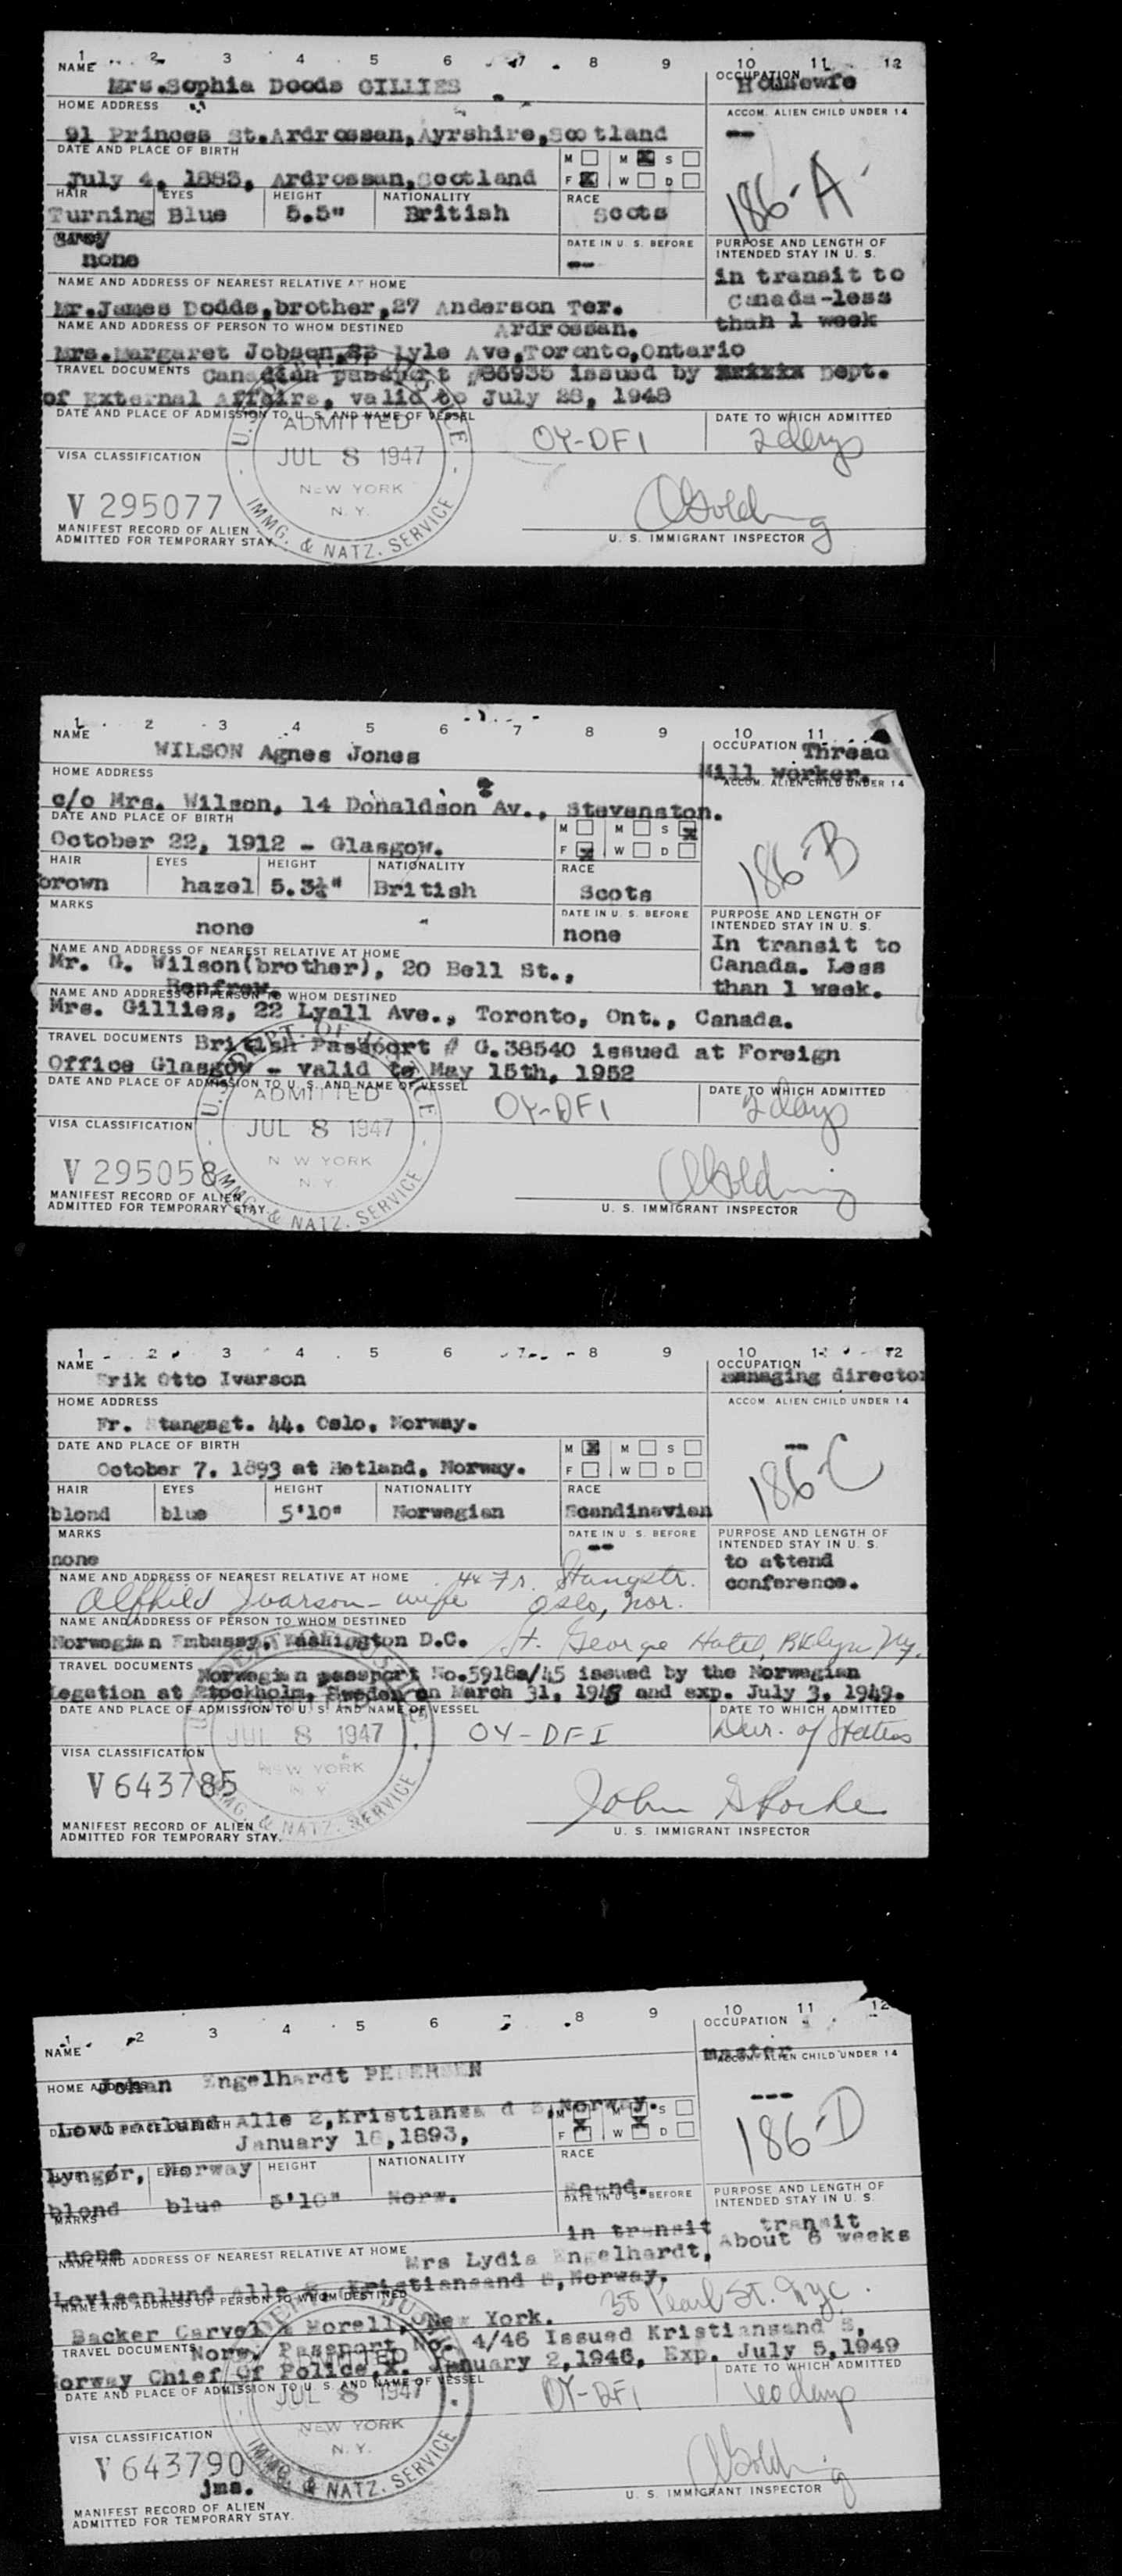 1 2 3 4 5 6 7 8 9 10 11 12
NAME OCCUPATION
Mrs.Sophia Doods GILLIES Housewfe
HOME ADDRESS ACCOM. ALIEN CHILD UNDER 14
91 Princes St.Ardrossan,Ayrshire,Scotland --
DATE AND PLACE OF BIRTH M M X S
July 4, 1883, Ardrossan,Scotland F X W D
186-A
HAIR EYES HEIGHT NATIONALITY RACE
Turning Blue 5.5" British Scots
Grey
none
DATE IN U. S. BEFORE
--
PURPOSE AND LENGTH OF
INTENDED STAY IN U. S.
in transit to
Canada-less
than 1 week
NAME AND ADDRESS OF NEAREST RELATIVE AT HOME
Mr.James Dodds,brother,27 Anderson Ter.
Ardrossan.
NAME AND ADDRESS OF PERSON TO WHOM DESTINED
Mrs.Margaret Jobson,22 Lyle Ave,Toronto,Ontario
TRAVEL DOCUMENTS Canadian passport #86935 issued by Dept.
of External Affairs, valid to July 28, 1948
DATE AND PLACE OF ADMISSION TO U. S. AND NAME OF VESSEL DATE TO WHICH ADMITTED
ADMITTED
OY-DFI 2 days
VISA CLASSIFICATION JUL 8 1947
NEW YORK
N. Y.
IMMG. & NATZ. SERVICE
V 295077
MANIFEST RECORD OF ALIEN
ADMITTED FOR TEMPORARY STAY.
U. S. IMMIGRANT INSPECTOR
1 2 3 4 5 6 7 8 9 10 11
NAME OCCUPATION Thread
WILSON Agnes Jones Mill worker.
HOME ADDRESS ACCOM. ALIEN CHILD UNDER 14
c/o Mrs. Wilson, 14 Donaldson Av., Stevenston.
DATE AND PLACE OF BIRTH M M S X
October 22, 1912 - Glasgow. F X W D
186-B
HAIR EYES HEIGHT NATIONALITY RACE
brown hazel 5.3½" British Scots
MARKS DATE IN U. S. BEFORE
none none
PURPOSE AND LENGTH OF
INTENDED STAY IN U. S.
In transit to
Canada. Less
than 1 week.
NAME AND ADDRESS OF NEAREST RELATIVE AT HOME
Mr. G. Wilson(brother), 20 Bell St.,
Renfrew.
NAME AND ADDRESS OF PERSON TO WHOM DESTINED
Mrs. Gillies, 22 Lyall Ave., Toronto, Ont., Canada.
TRAVEL DOCUMENTS British Passport # G.38540 issued at Foreign
Office Glasgow - valid to May 15th, 1952
DATE AND PLACE OF ADMISSION TO U. S. AND NAME OF VESSEL DATE TO WHICH ADMITTED
ADMITTED
OY-DFI 2 days
VISA CLASSIFICATION JUL 8 1947
N W YORK
N. Y.
IMMG. & NATZ. SERVICE
V 295058
MANIFEST RECORD OF ALIEN
ADMITTED FOR TEMPORARY STAY.
U. S. IMMIGRANT INSPECTOR
1 2 3 4 5 6 7 8 9 10 11 12
NAME OCCUPATION
Erik Otto Ivarson managing director
HOME ADDRESS ACCOM. ALIEN CHILD UNDER 14
Fr. Stangsgt. 44. Oslo. Norway. --
DATE AND PLACE OF BIRTH M X M S
October 7. 1893 at Hetland, Norway. F W D
186-C
HAIR EYES HEIGHT NATIONALITY RACE
blond blue 5'10" Norwegian Scandinavian
MARKS DATE IN U. S. BEFORE
none --
PURPOSE AND LENGTH OF
INTENDED STAY IN U. S.
to attend
conference.
NAME AND ADDRESS OF NEAREST RELATIVE AT HOME 44 Fr. Stangstr.
Alfhild Ivarson - wife Oslo, Nor.
NAME AND ADDRESS OF PERSON TO WHOM DESTINED
Norwegian Embassy, Washington D.C. St. George Hotel, Bklyn Ny.
TRAVEL DOCUMENTS Norwegian passport No.5918a/45 issued by the Norwegian
Legation at Stockholm, Sweden on March 31, 1945 and exp. July 3, 1949.
DATE AND PLACE OF ADMISSION TO U. S. AND NAME OF VESSEL DATE TO WHICH ADMITTED
JUL 8 1947 OY-DFI Dur. of Status
VISA CLASSIFICATION
NEW YORK
N. Y.
IMMG. & NATZ. SERVICE
V 643785
MANIFEST RECORD OF ALIEN
ADMITTED FOR TEMPORARY STAY.
U. S. IMMIGRANT INSPECTOR
1 2 3 4 5 6 7 8 9 10 11 12
NAME OCCUPATION
master
HOME ADDRESS ACCOM. ALIEN CHILD UNDER 14
Johan Engelhardt PEDERSEN ---
Lovisenlund Alle 2,Kristiansand S,Norway.
DATE AND PLACE OF BIRTH M X M X S
January 18,1893, F W D
186-D
Lyngør, Norway
EYES HEIGHT NATIONALITY RACE
blond blue 5'10" Norw. Scand.
MARKS DATE IN U. S. BEFORE
none in transit
PURPOSE AND LENGTH OF
INTENDED STAY IN U. S.
transit
About 8 weeks
NAME AND ADDRESS OF NEAREST RELATIVE AT HOME
Mrs Lydia Engelhardt,
Lovisenlund Alle 2, Kristiansand S,Norway.
NAME AND ADDRESS OF PERSON TO WHOM DESTINED
Backer Carvel & Morell, New York. 38 Pearl St. Nyc.
TRAVEL DOCUMENTS Norw. Passport No. 4/46 Issued Kristiansand S,
Norway Chief of Police, January 2,1946, Exp. July 5,1949
DATE AND PLACE OF ADMISSION TO U. S. AND NAME OF VESSEL DATE TO WHICH ADMITTED
ADMITTED
JUL 8 1947 OY-DFI 60 days
VISA CLASSIFICATION
NEW YORK
N. Y.
IMMG. & NATZ. SERVICE
V 643790
jms.
MANIFEST RECORD OF ALIEN
ADMITTED FOR TEMPORARY STAY.
U. S. IMMIGRANT INSPECTOR